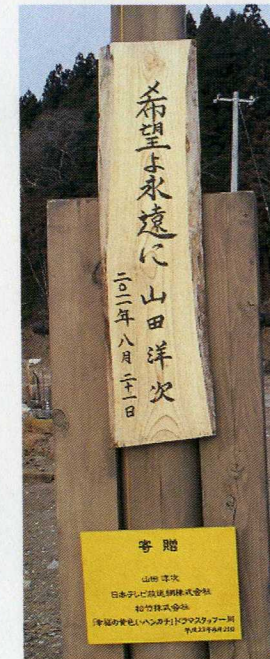 希望よ永遠に 山田洋次
二〇一一年 八月 二十一日
寄贈
山田洋次
日本テレビ放送網株式会社
松竹株式会社
「幸福の黄色いハンカチ」ドラマスタッフ一同
平成23年8月21日